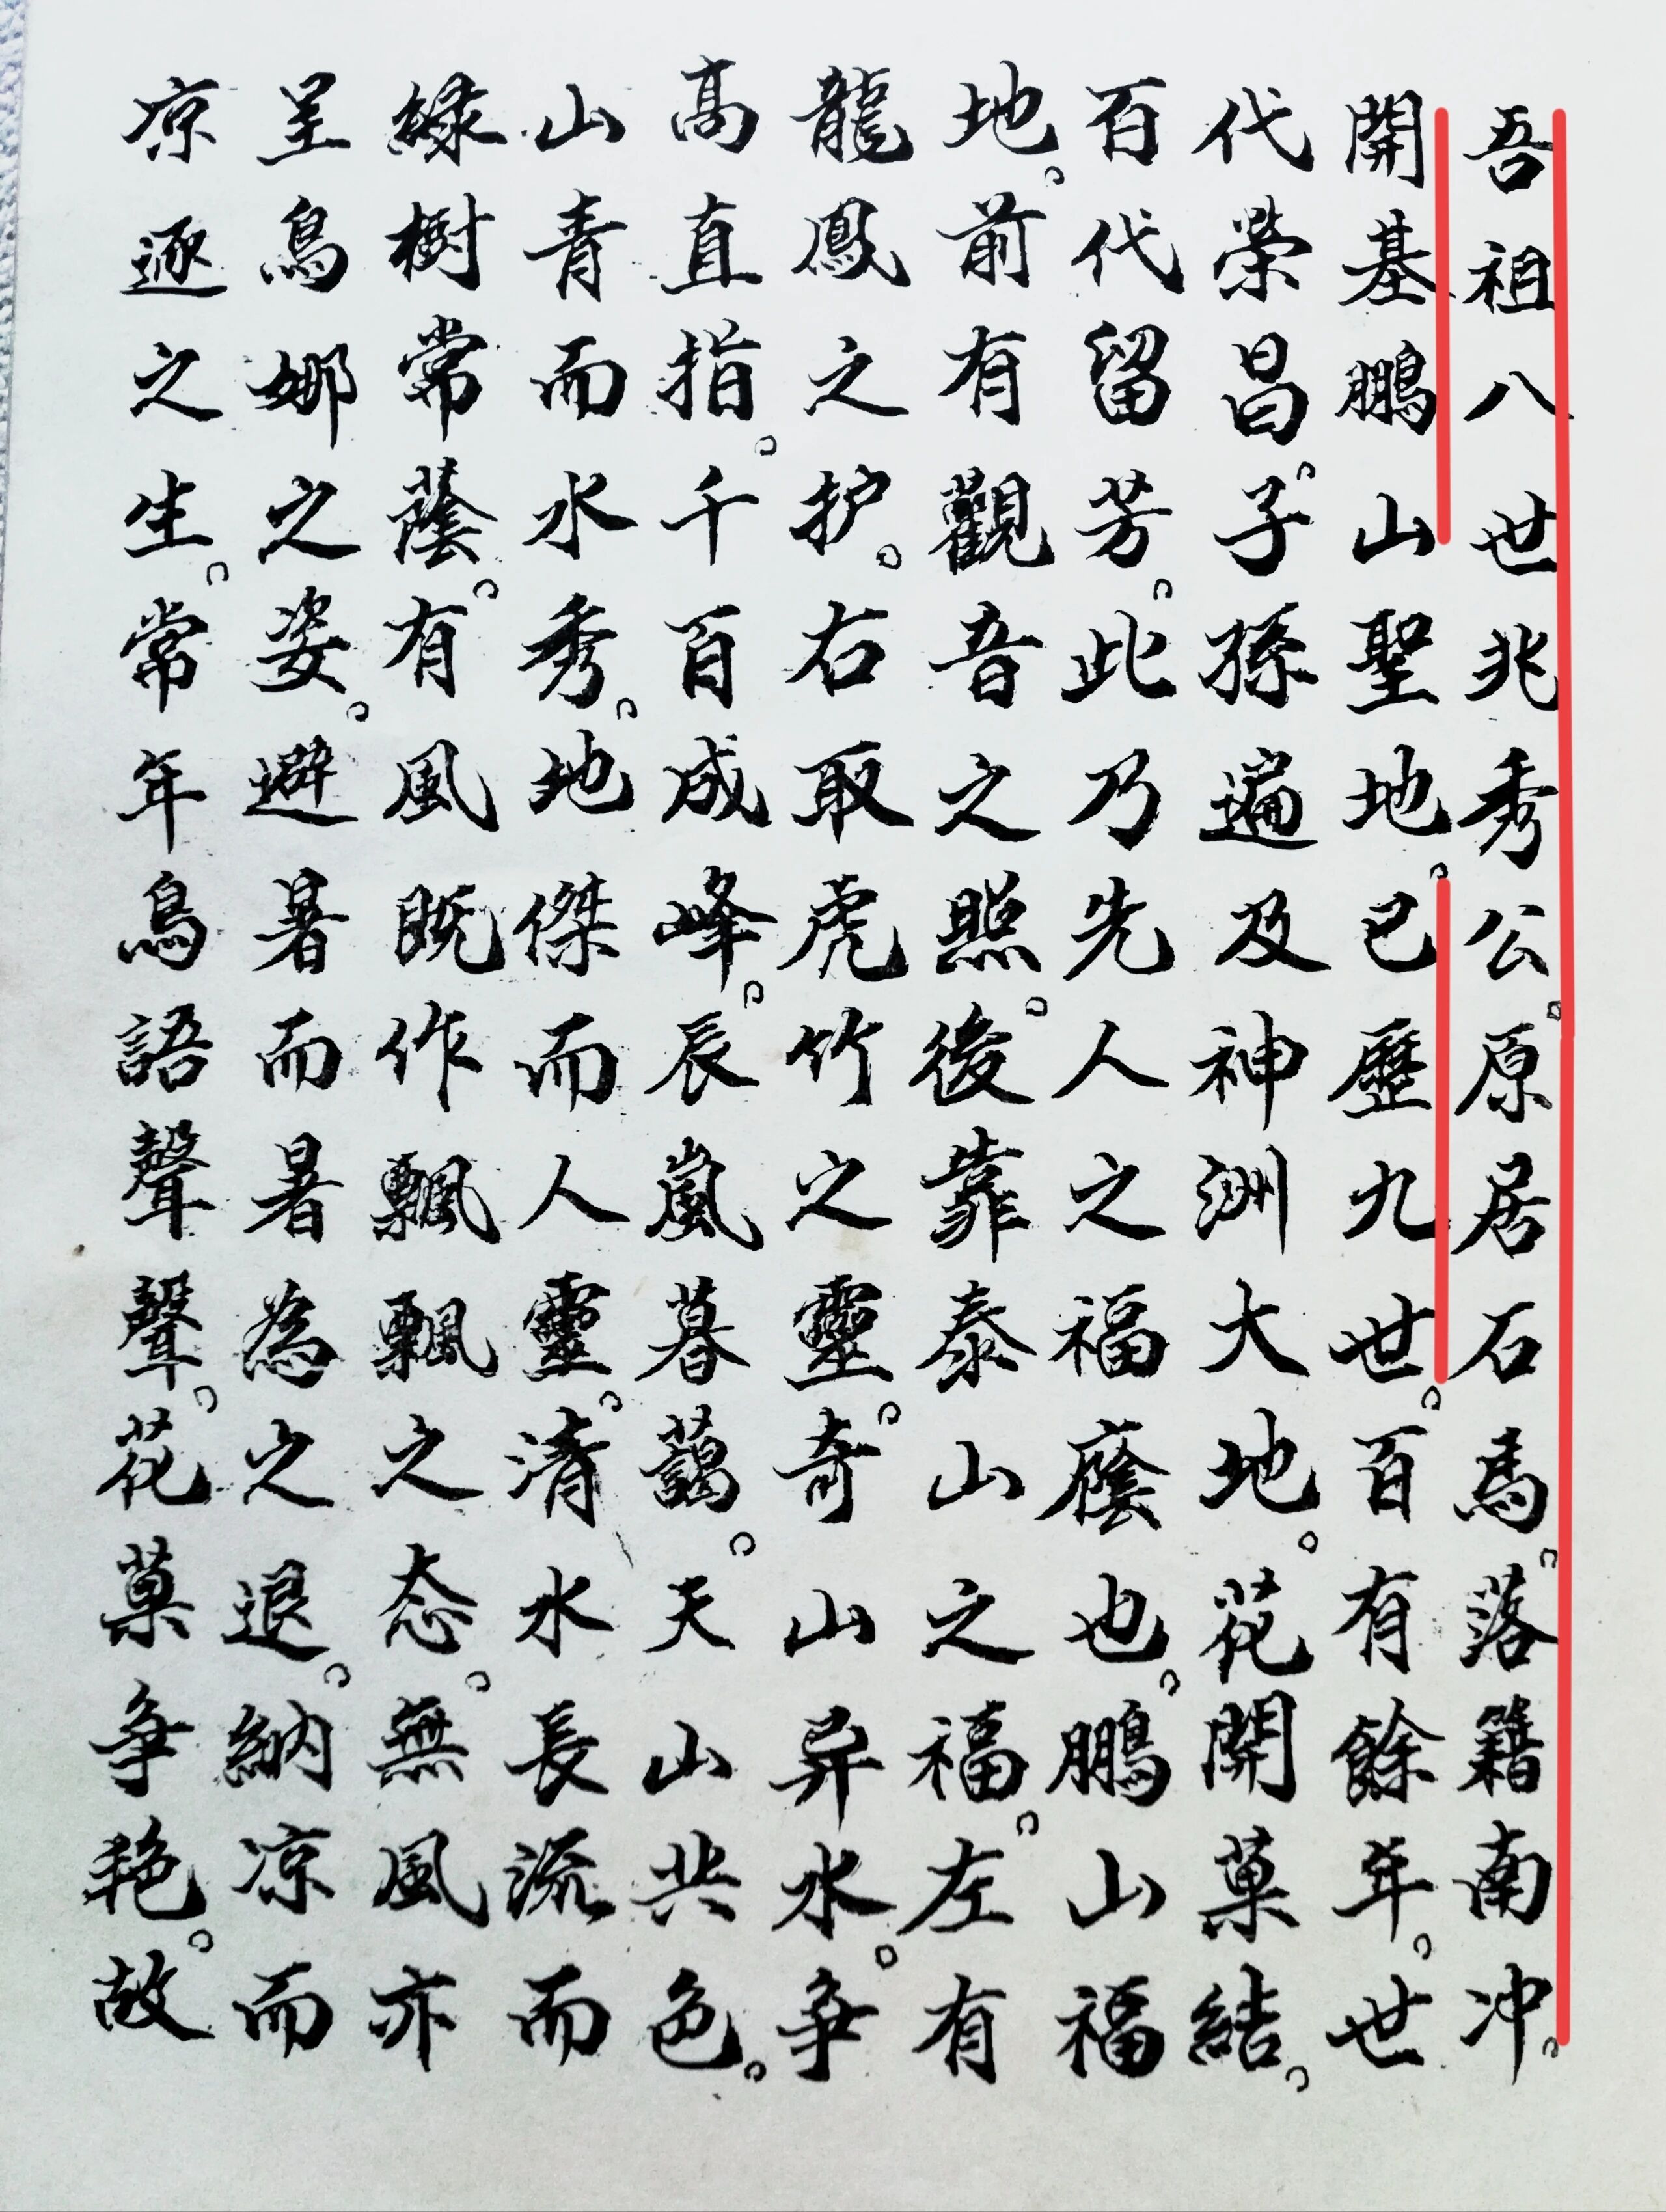 吾祖八世兆秀公。原居石馬。落籍南冲。
開基鵬山聖地。已歷九世。百有餘年。世
代榮昌。子孫遍及神洲大地。花開菓結。
百代留芳。此乃先人之福廕也。鵬山福
地。前有觀音之照。後靠泰山之福。左有
龍鳳之护。右取虎竹之靈。奇山异水。争
高直指。千百成峰。辰嵐暮藹。天山共色。
山青而水秀。地傑而人靈。清水長流而
緑樹常蔭。有風既作飄飄之态。無風亦
呈鳥娜之姿。避暑而暑為之退。納凉而
凉逐之生。常年鳥語聲聲。花菓争艳。故